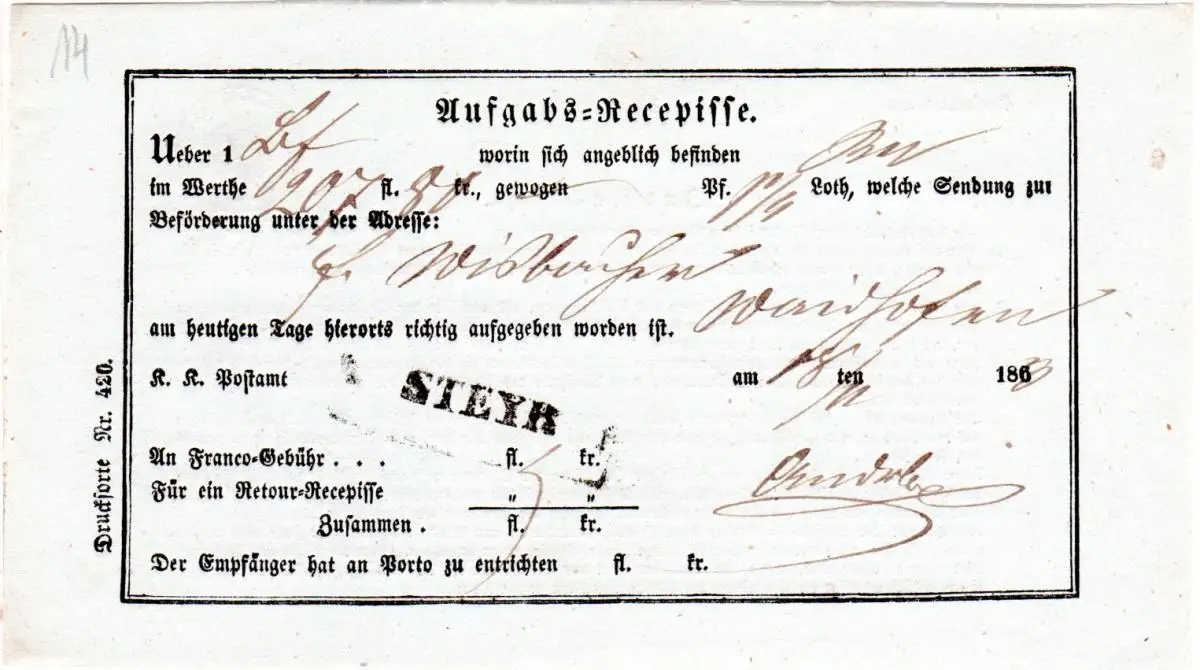 14
Aufgabs-Recepisse.
Ueber 1 Bf worin sich angeblich befinden
im Werthe 207 fl. 80 kr., gewogen — Pf. Loth, welche Sendung zur
Beförderung unter der Adresse:
Wisbacher
Waidhofen
am heutigen Tage hierorts richtig aufgegeben worden ist.
K. K. Postamt STEYR am 18/11 ten 1863
An Franco-Gebühr . . . fl. kr.
Für ein Retour-Recepisse „ „
Zusammen . fl. kr.
Der Empfänger hat an Porto zu entrichten fl. kr.
Drucksorte Nr. 420.